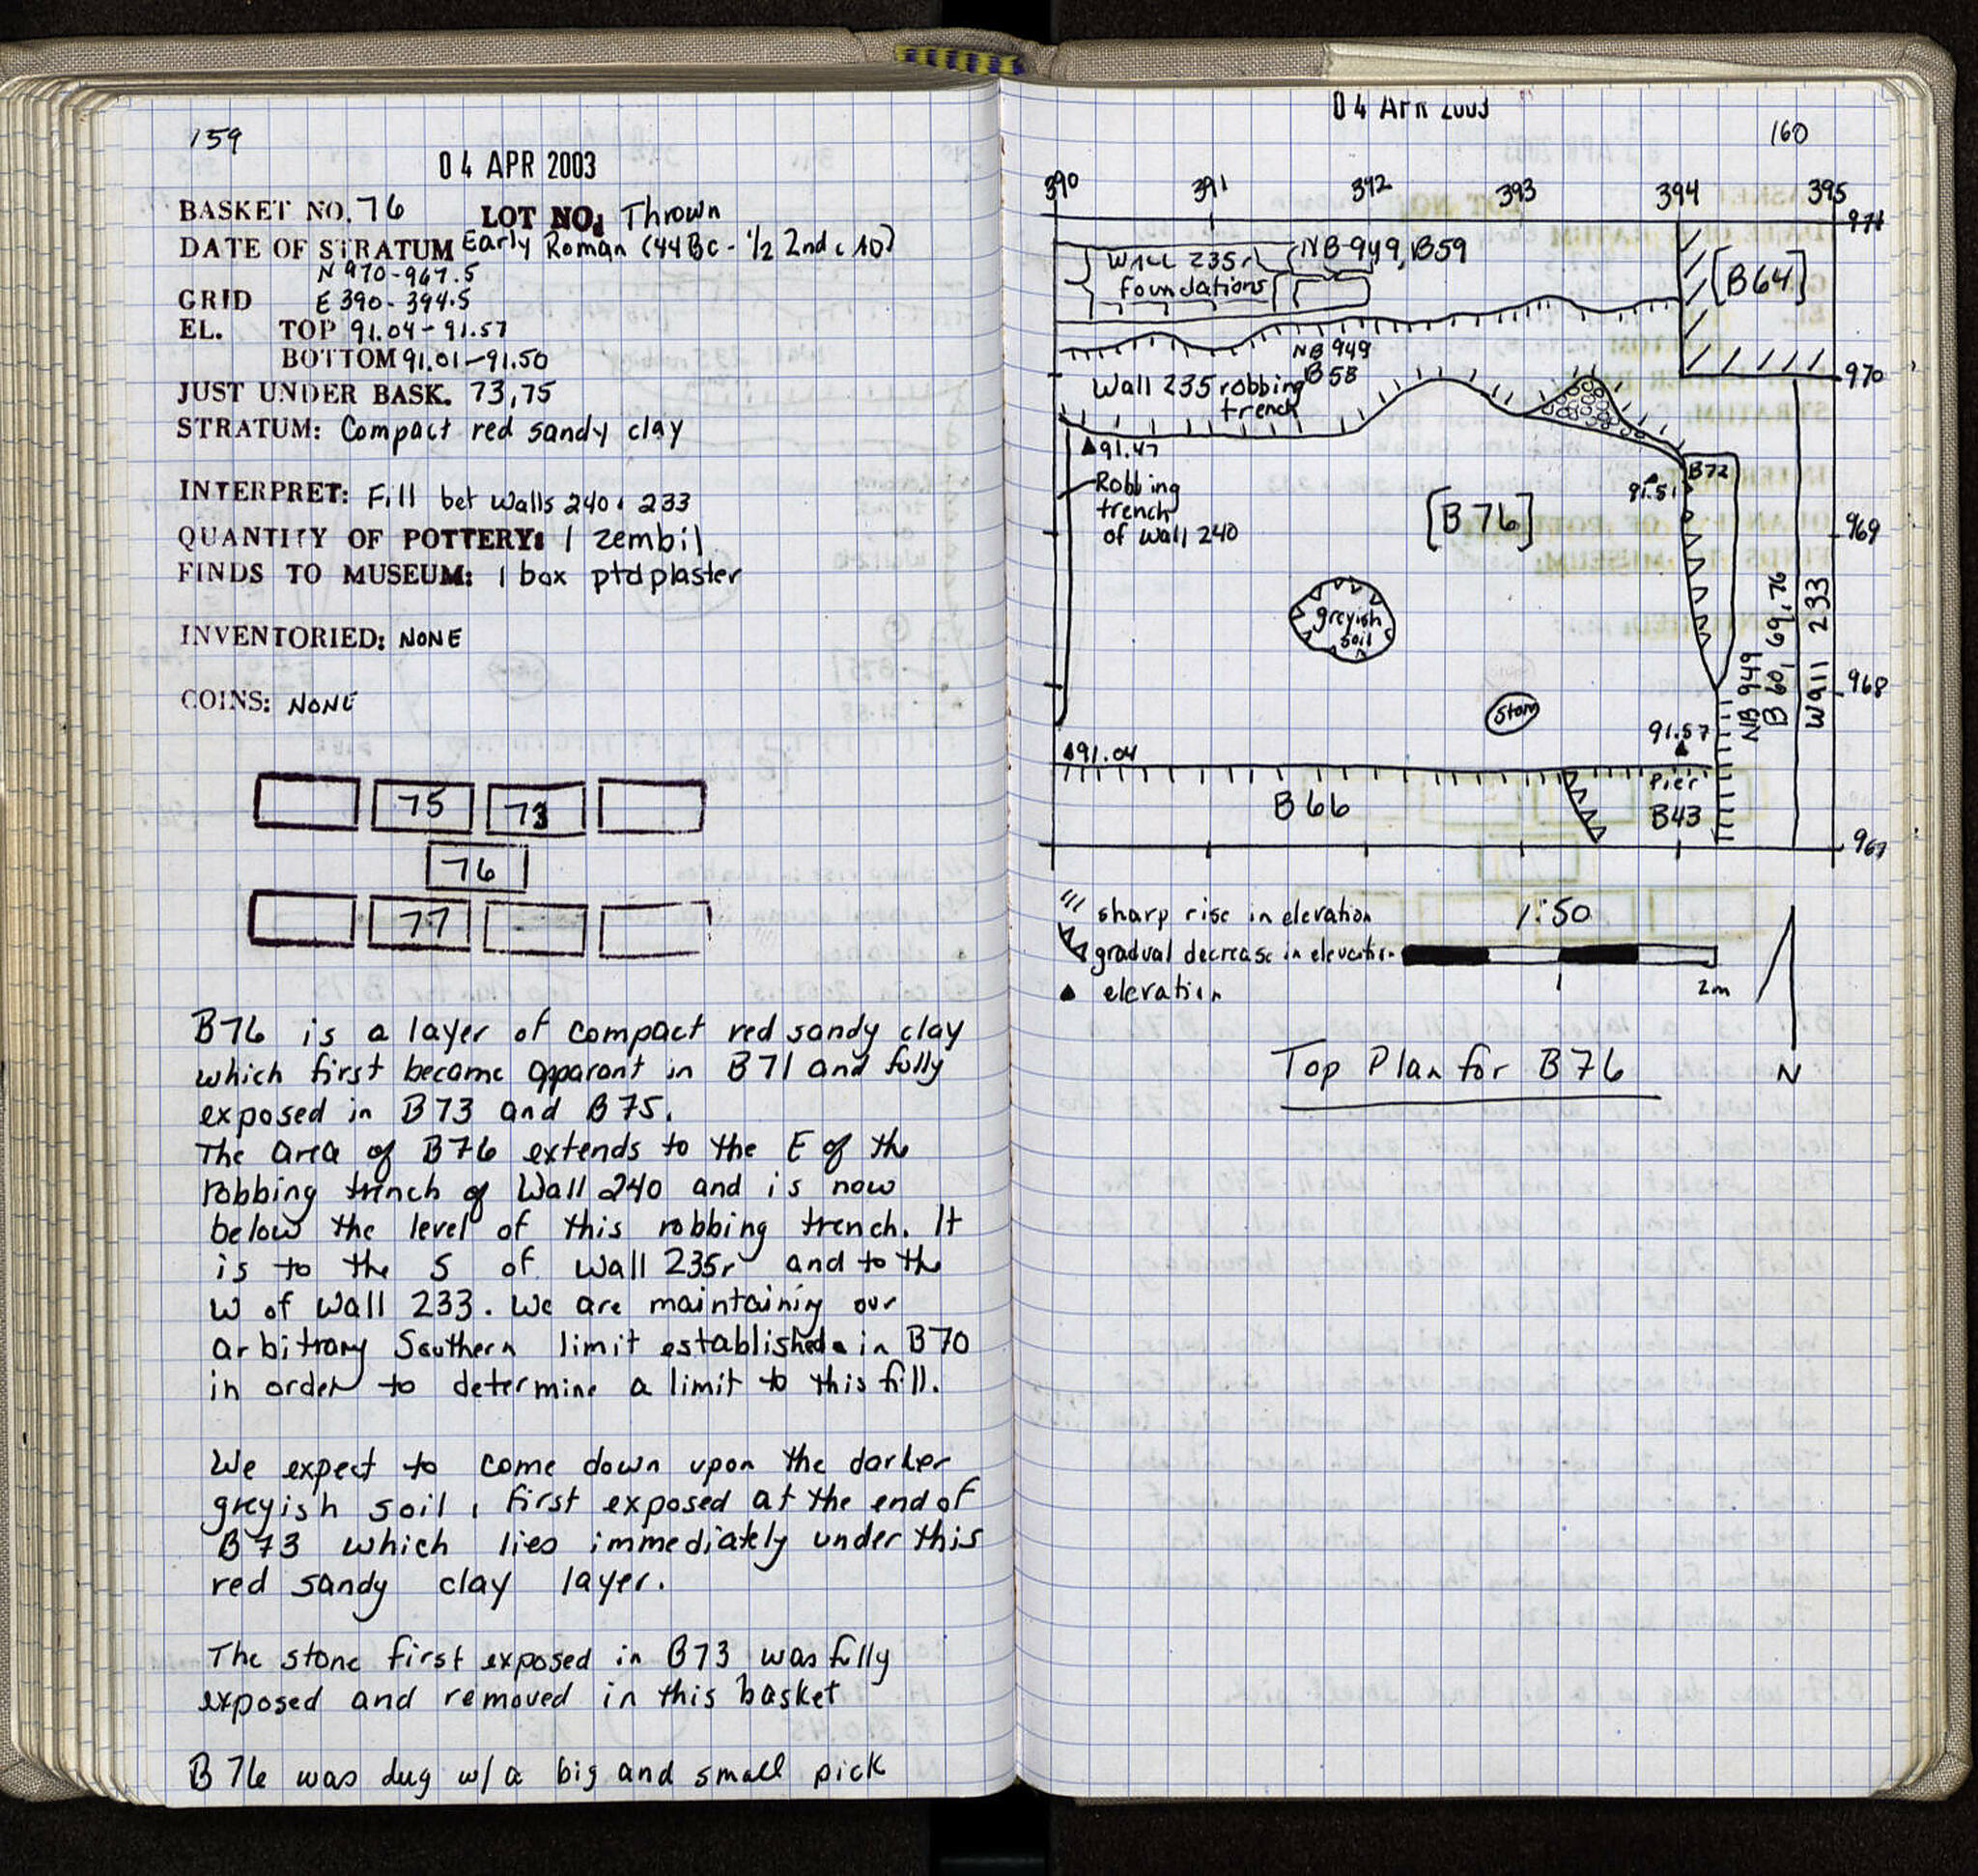 159
04 APR 2003
BASKET NO. 76 LOT NO: Thrown
DATE OF STRATUM Early Roman (44 BC - 1/2 2nd c AD)
N 970-967.5
GRID E 390-394.5
EL. TOP 91.04-91.57
BOTTOM 91.01-91.50
JUST UNDER BASK. 73,75
STRATUM: Compact red sandy clay
INTERPRET: Fill bet walls 240 & 233
QUANTITY OF POTTERY: 1 zembil
FINDS TO MUSEUM: 1 box ptd plaster
INVENTORIED: NONE
COINS: NONE
75 73
76
77
B76 is a layer of compact red sandy clay
which first became apparant in B71 and fully
exposed in B73 and B75.
The area of B76 extends to the E of the
robbing trench of Wall 240 and is now
below the level of this robbing trench. It
is to the S of Wall 235r and to the
W of Wall 233. We are maintaining our
arbitrary Southern limit established in B70
in order to determine a limit to this fill.
We expect to come down upon the darker
greyish soil, first exposed at the end of
B73 which lies immediately under this
red sandy clay layer.
The stone first exposed in B73 was fully
exposed and removed in this basket
B76 was dug w/ a big and small pick
04 APR 2003
160
390 391 392 393 394 395
971
Wall 235r NB 949, B59
foundations
[B64]
NB 949
B58
970
Wall 235 robbing
trench
91.47
B72
91.51
Robbing
trench
of Wall 240
[B76]
969
greyish
soil
NB 949
B 60, 69, 76
Wall 233
968
Stone
91.57
91.04
Pier
B66
B43
967
sharp rise in elevation
1:50
gradual decrease in elevation
1 2m
elevation
Top Plan for B76
N